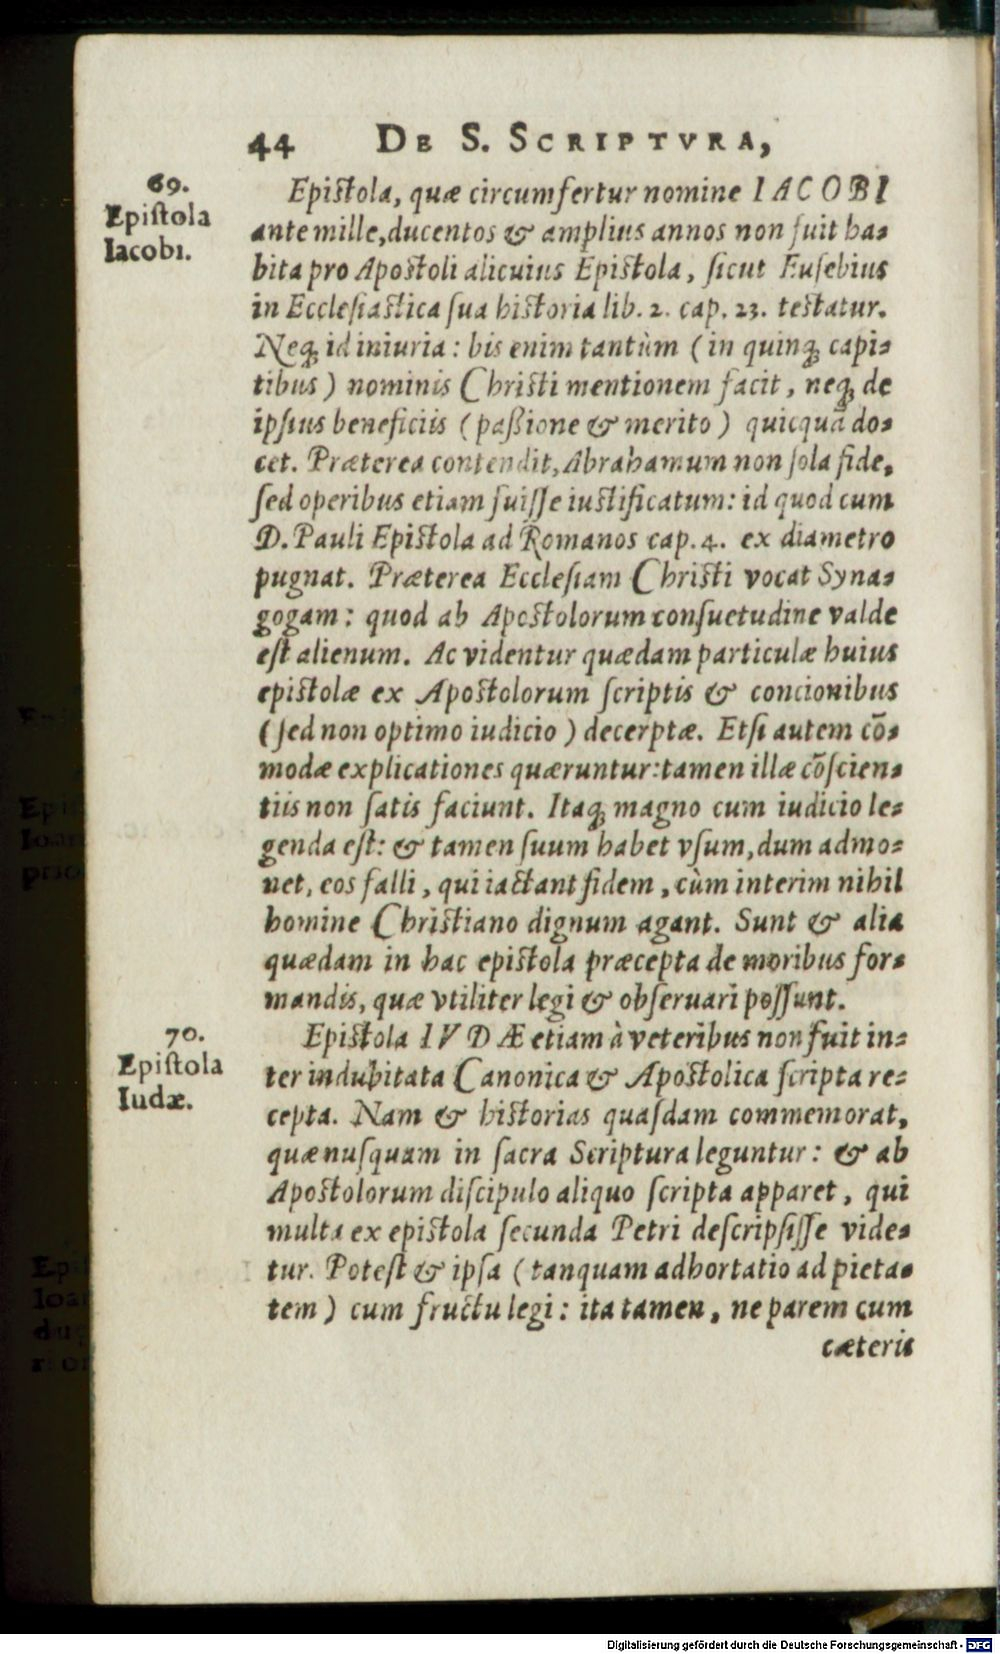 44 DE S. SCRIPTVRA,
69.
Epiſtola
Iacobi.
Epiſtola, quæ circumfertur nomine IACOBI
ante mille, ducentos & amplius annos non fuit ha⸗
bita pro Apoſtoli alicuius Epiſtola, ſicut Euſebius
in Eccleſiaſtica ſua hiſtoria lib. 2. cap. 23. teſtatur.
Neq́; id iniuria: bis enim tantùm (in quinq́; capi⸗
tibus) nominis Chriſti mentionem facit, neq́; de
ipſius beneficiis (paßione & merito) quicquā do⸗
cet. Præterea contendit, Abrahamum non ſola fide,
ſed operibus etiam fuiſſe iuſtificatum: id quod cum
D. Pauli Epiſtola ad Romanos cap. 4. ex diametro
pugnat. Præterea Eccleſiam Chriſti vocat Syna⸗
gogam: quod ab Apoſtolorum conſuetudine valde
eſt alienum. Ac videntur quædam particulæ huius
epiſtolæ ex Apoſtolorum ſcriptis & concionibus
(ſed non optimo iudicio) decerptæ. Etſi autem cō⸗
modæ explicationes quæruntur: tamen illæ cōſcien⸗
tiis non ſatis faciunt. Itaq́; magno cum iudicio le⸗
genda eſt: & tamen ſuum habet vſum, dum admo⸗
net, eos falli, qui iactant fidem, cùm interim nihil
homine Chriſtiano dignum agant. Sunt & alia
quædam in hac epiſtola præcepta de moribus for⸗
mandis, quæ vtiliter legi & obſeruari poſſunt.
70.
Epiſtola
Iudæ.
Epiſtola IVDÆ etiam à veteribus non fuit in⸗
ter indubitata Canonica & Apoſtolica ſcripta re⸗
cepta. Nam & hiſtorias quaſdam commemorat,
quæ nuſquam in ſacra Scriptura leguntur: & ab
Apoſtolorum diſcipulo aliquo ſcripta apparet, qui
multa ex epiſtola ſecunda Petri deſcripſiſſe vide⸗
tur. Poteſt & ipſa (tanquam adhortatio ad pieta⸗
tem) cum fructu legi: ita tamen, ne parem cum
cæteris
Digitalisierung gefördert durch die Deutsche Forschungsgemeinschaft - DFG